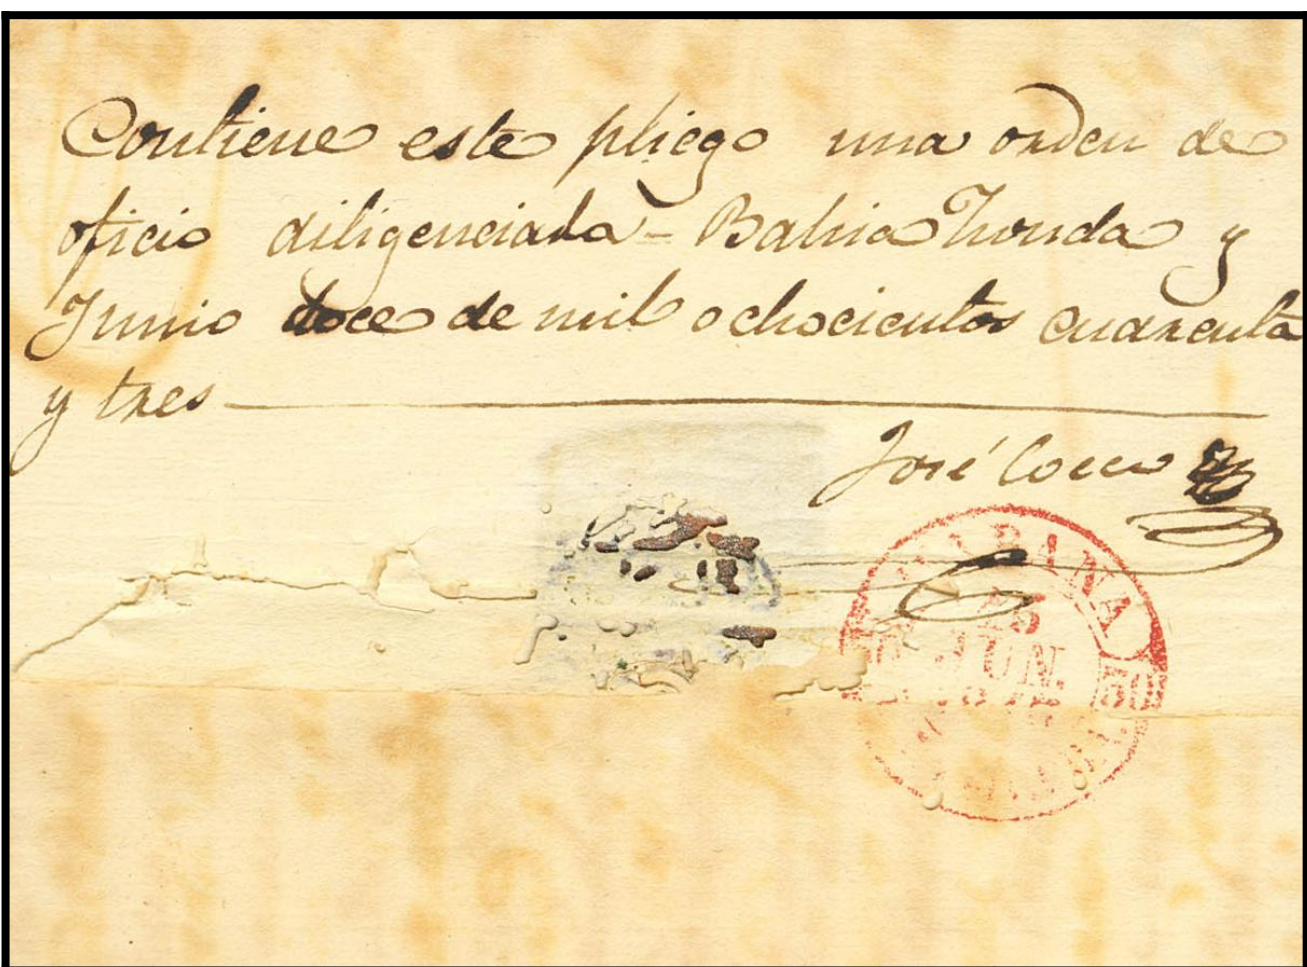 Contiene este pliego una orden de
oficio diligenciada - Bahia Honda y
Junio doce de mil ochocientos cuarenta
y tres
José
HABANA
JUN.